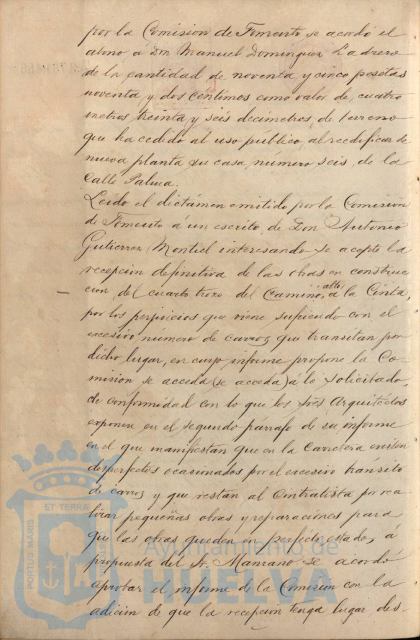 por la Comision de Fomento se acordó el
abono a Don Manuel Dominguez Ladrero
de la cantidad de noventa y cinco pesetas
noventa y dos centimos como valor de cuatro
metros treinta y seis decimetros, de terreno
que ha cedido al uso público, al reedificar de
nueva planta su casa, numero seis, de la
Calle Palma.
Leido el dictámen emitido por la Comision
de Fomento á un escrito, de Don Antonio
Gutierrez Montiel interesando se acepte la
recepcion definitiva de las obras en construc
cion del cuarto trozo del Camino alto á la Cinta,
por los perjuicios que viene sufriendo con el
excesivo número de carros, que transitan por
dicho lugar, en cuyo informe propone la Co-
mision se acceda (se acceda) á lo solicitado
de conformidad con lo que los Sres Arquitectos
exponen en el segundo parrafo de su informe
en el que manifiestan que en la Carretera existen
desperfectos ocasionados por el excesivo transito
de carros y que restan al Contratista por rea
lizar pequeñas obras y reparaciones para
que las obras queden en perfecto estado, á
propuesta del Sr. Manzano se acordó
aprobar el informe de la Comision con la
adicion de que la recepcion tenga lugar des-
PORTUS MARIS ET TERRAE
Ayuntamiento de
HUELVA